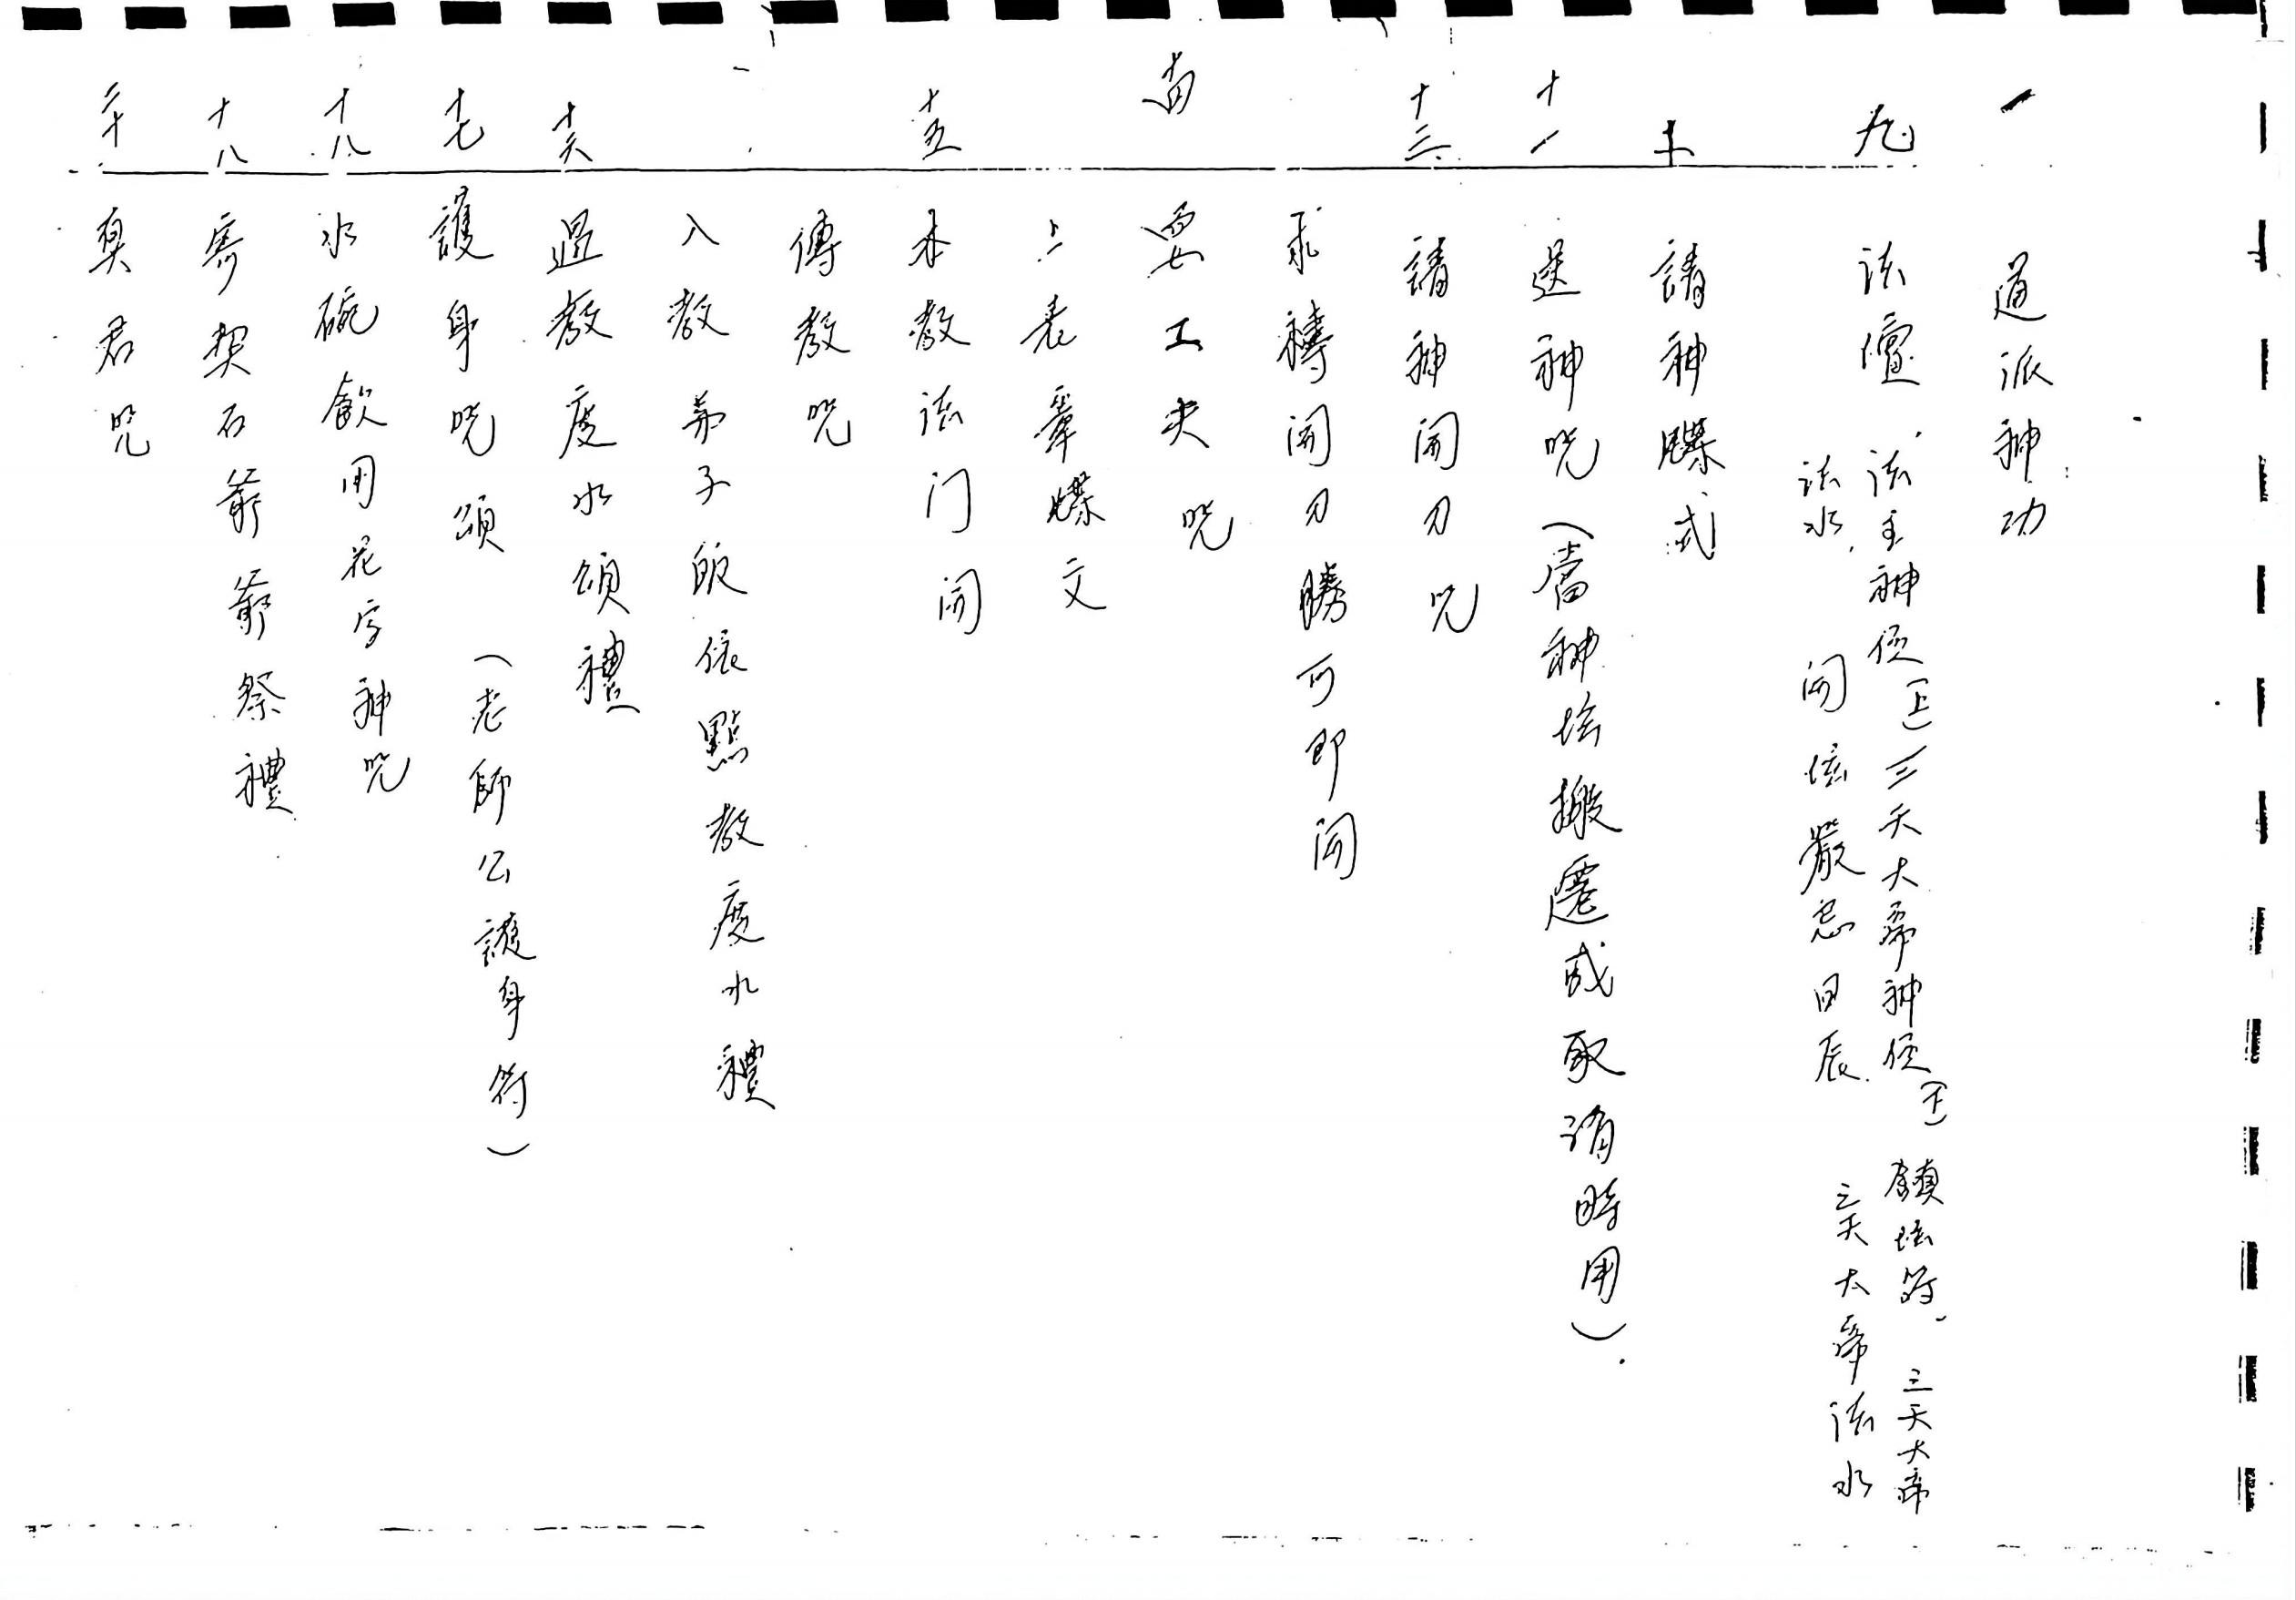 一 道派神功
九 法壇 法主神位(上) 三天大帝神位(下) 鎮坛符、三天大帝
法水、開坛嚴忌日辰 三天大帝法水
十 請神牒式
十一 送神咒(當神坛搬遷或取消時用).
十三 請神開刀咒
求禱開刀勝可即開
要工夫咒
上表章牒文
十五 本教法门開
傳教咒
入教弟子皈依點教度水禮
十六 過教度水頌禮
十七 護身咒頌 (老師公護身符)
十八 水碗飲用花字神咒
十八 寄契石爺爺祭禮
二十 奠君咒